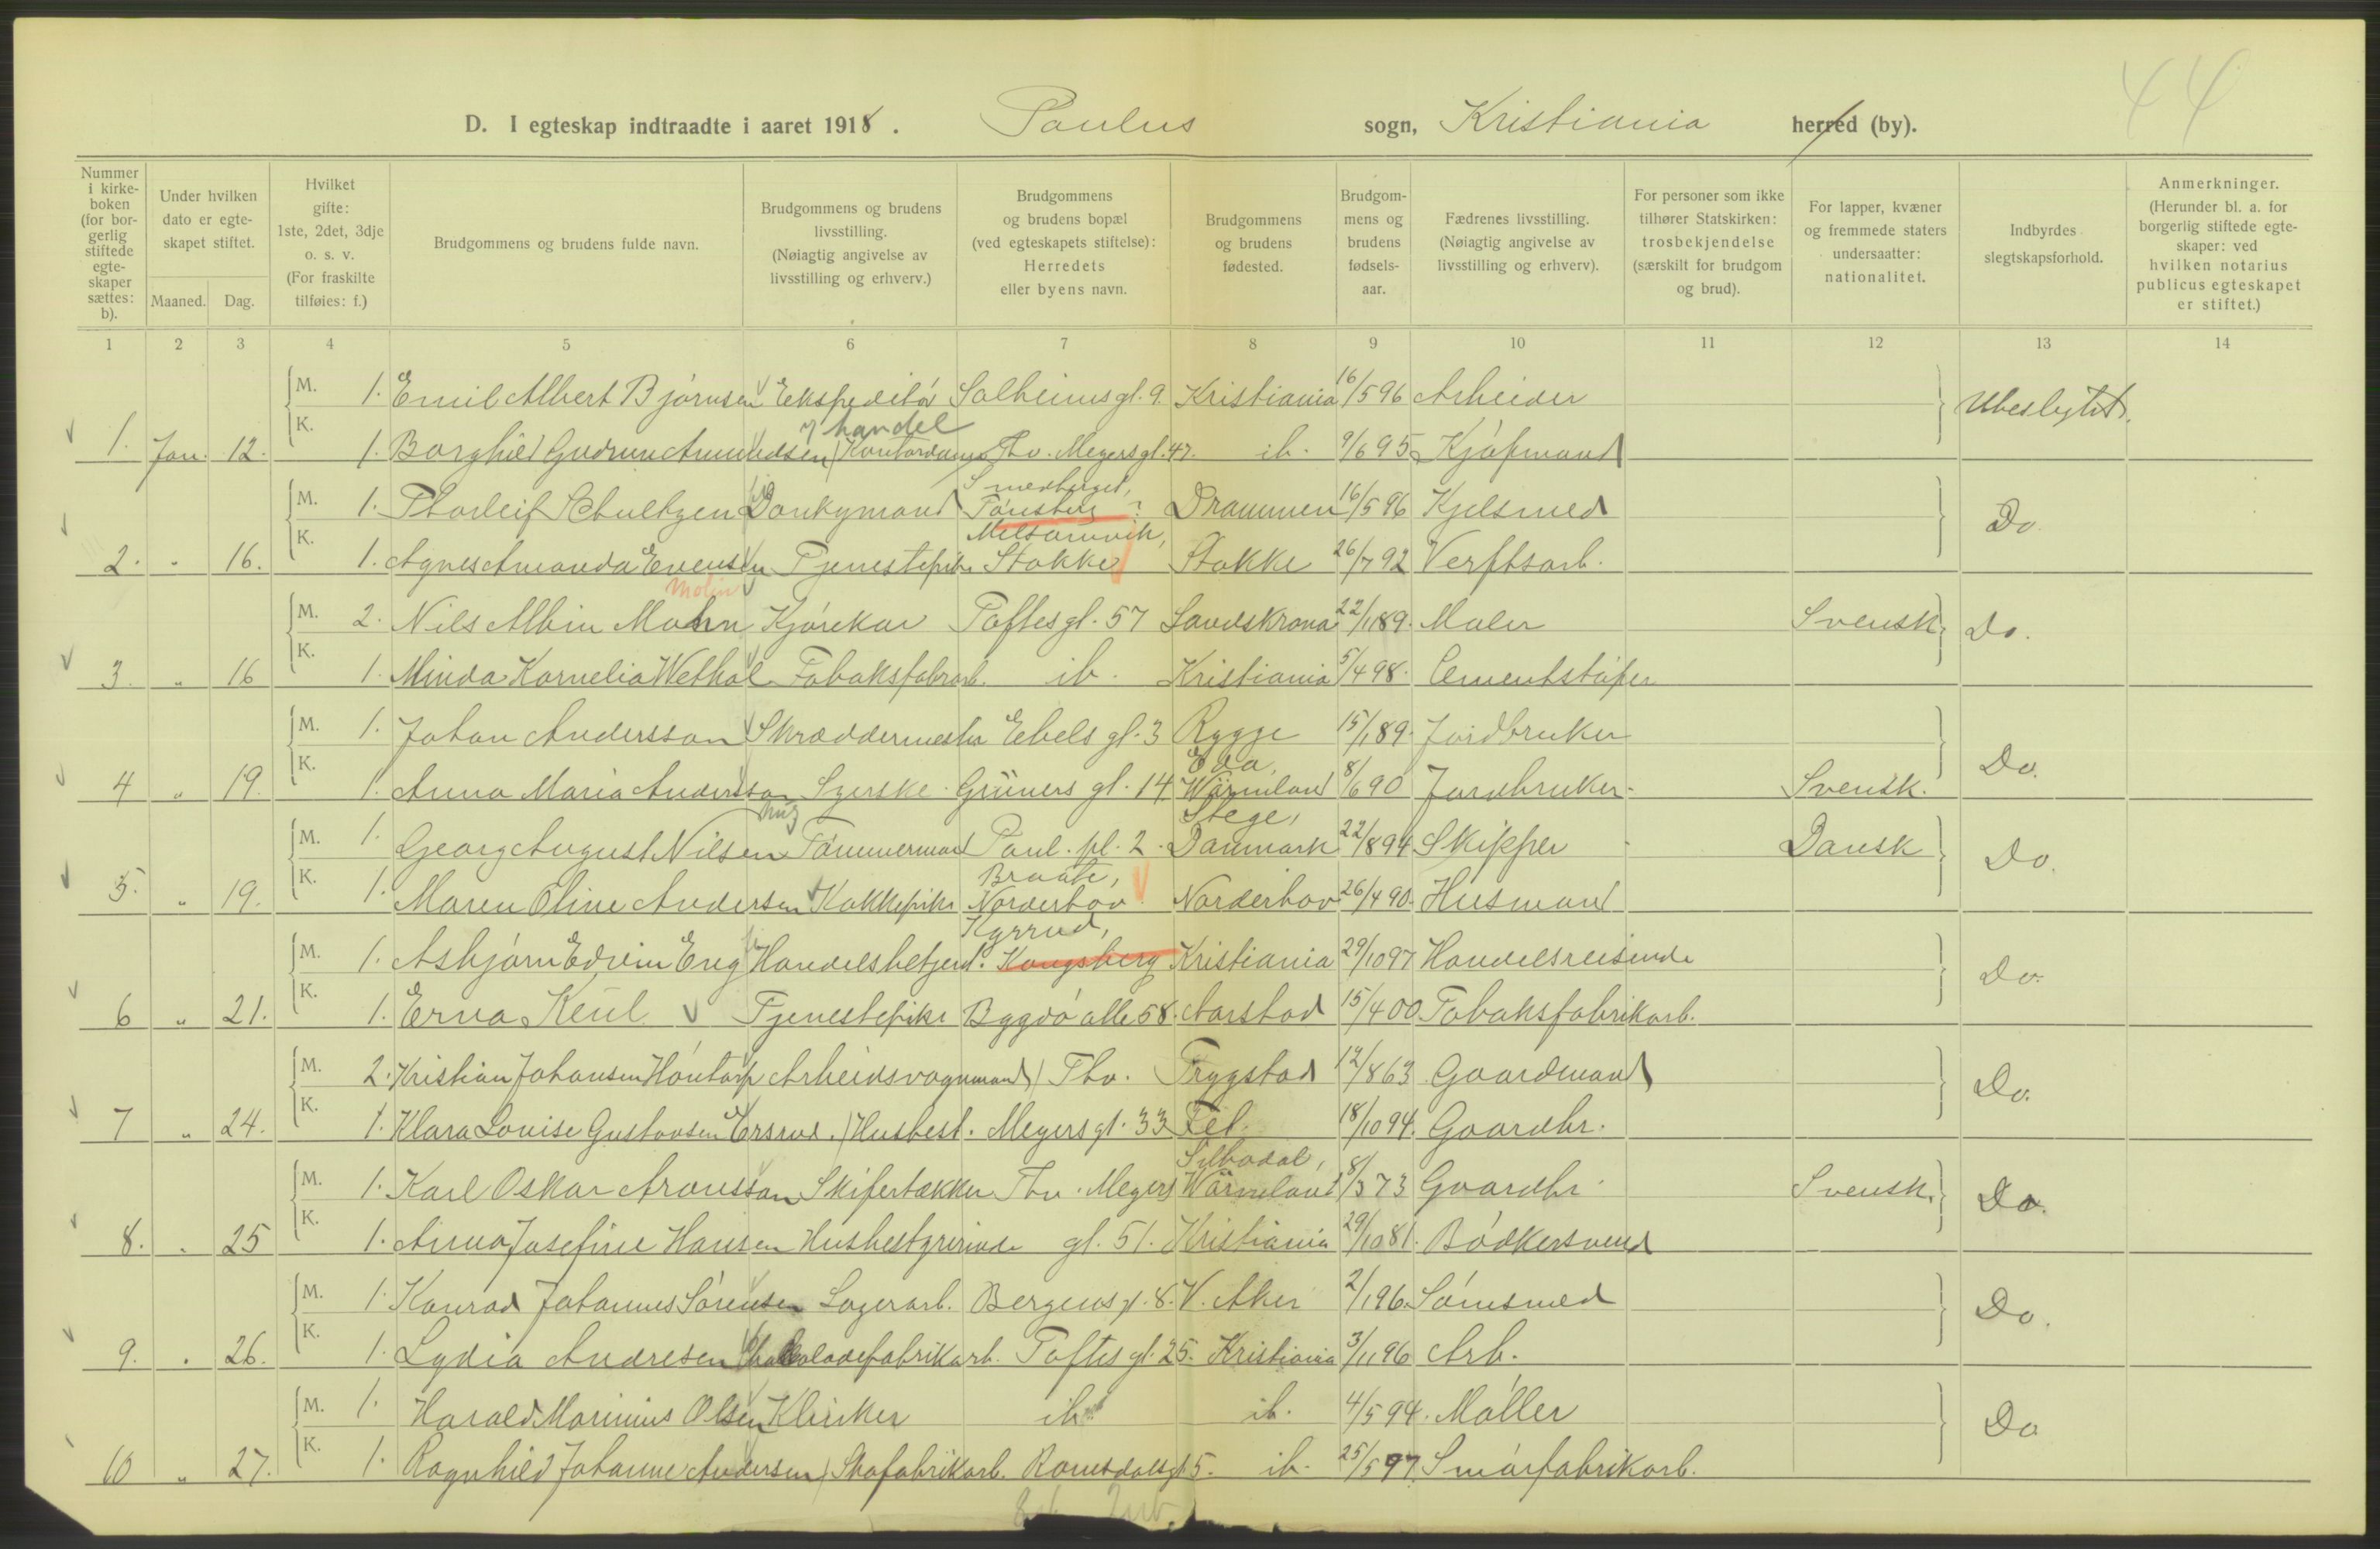 44
D. I egteskap indtraadte i aaret 1918. Paulus sogn, Kristiania herred (by).
Nummer i kirke-boken (for bor-gerlig stiftede egte-skaper sættes: b).
Under hvilken dato er egte-skapet stiftet.
Maaned. Dag.
Hvilket gifte: 1ste, 2det, 3dje o. s. v. (For fraskilte tilføies: f.)
Brudgommens og brudens fulde navn.
Brudgommens og brudens livsstilling. (Nøiagtig angivelse av livsstilling og erhverv.)
Brudgommens og brudens bopæl (ved egteskapets stiftelse): Herredets eller byens navn.
Brudgommens og brudens fødested.
Brudgom-mens og brudens fødsels-aar.
Fædrenes livsstilling. (Nøiagtig angivelse av livsstilling og erhverv).
For personer som ikke tilhører Statskirken: trosbekjendelse (særskilt for brudgom og brud).
For lapper, kvæner og fremmede staters undersaatter: nationalitet.
Indbyrdes slegtskapsforhold.
Anmerkninger. (Herunder bl. a. for borgerlig stiftede egte-skaper: ved hvilken notarius publicus egteskapet er stiftet.)
1 2 3 4 5 6 7 8 9 10 11 12 13 14
M. 1. Emil Albert Bjørnsen Ekspeditør Solheimsgt. 9. Kristiania 16/5 96 Arbeider Ubeslegtet.
handel
1. Jan. 12. K. 1. Borghild Gudrun Amundsen Kontordame Thv. Meyersgt. 47. ib. 9/6 95 Kjøpmand
Smedberget,
M. 1. Thorleif Schultzen Donkymand Tønsberg ? Drammen 16/5 96 Kjelsmed Do.
Melsomvik,
2. " 16. K. 1. Agnes Amanda Evensen Tjenestepike Stokke Stokke 26/7 92 Verftsarb.
Molin
M. 2. Nils Albin Molin Kjørekar Toftesgt. 57 Landskrona 22/1 89. Maler Svensk Do.
3. " 16 K. 1. Minda Kornelia Wethal Tobaksfabrarb. ib. Kristiania 5/4 98. Cementstøper
M. 1. Johan Andersson Skræddermester Ebels gt. 3 Rygge 15/1 89. Jordbruker Do.
Eda,
4 " 19. K. 1. Anna Maria Andersson Syerske Grüners gt. 14 Wärmland 8/6 90 Jordbruker Svensk.
Stege,
M. 1. Georg August Nilsen Tømmermand Paul. pl. 2. Danmark 22/8 94 Skipper Dansk Do.
Braate,
5. " 19. K. 1. Maren Oline Andersen Kokkepike Norderhov Norderhov 26/4 90. Husmand
Kyrrud,
M. 1. Asbjørn Edvin Eng Handelsbetjent. Kongsberg Kristiania 29/10 97 Handelsreisende Do.
6 " 21. K. 1. Erna Keül Tjenestepike Bygdø alle 58. Aarstad 15/4 00 Tobaksfabrikarb.
M. 2. Kristian Johansen Høntorp Arbeidsvognmand Thv. Trygstad 12/8 63 Gaardmand Do.
7 " 24. K. 1. Klara Louise Gustavsen Ersrud. Husbest. Meyersgt. 33 Fet. 18/10 94. Gaardbr.
Silbodal,
M. 1. Karl Oskar Aronsson Skifertækker Thv. Meyers Wärmland 8/3 73 Gaardbr. Svensk. Do.
8. " 25 K. 1. Anna Josefine Hansen Husbestyrerinde gt. 51. Kristiania 29/10 81. Bødkersvend
M. 1. Konrad Johannes Sørensen Lagerarb. Bergensgt. 8. V. Aker 2/1 96. Sømsmed Do.
9. " 26. K. 1. Lydia Andresen Chokoladefabrikarb. Toftesgt. 25. Kristiania 3/11 96 Arb.
M. 1. Harald Marinius Olsen Klinker ib. ib. 4/5 94. Møller Do
10 " 27. K. 1. Ragnhild Johanne Andersen Skofabrikarb. Romsdalsgt. 5. ib. 25/5 97. Smørfabrikarb.